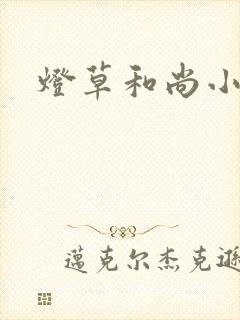 燈草和尚小
邁克尔杰克遜